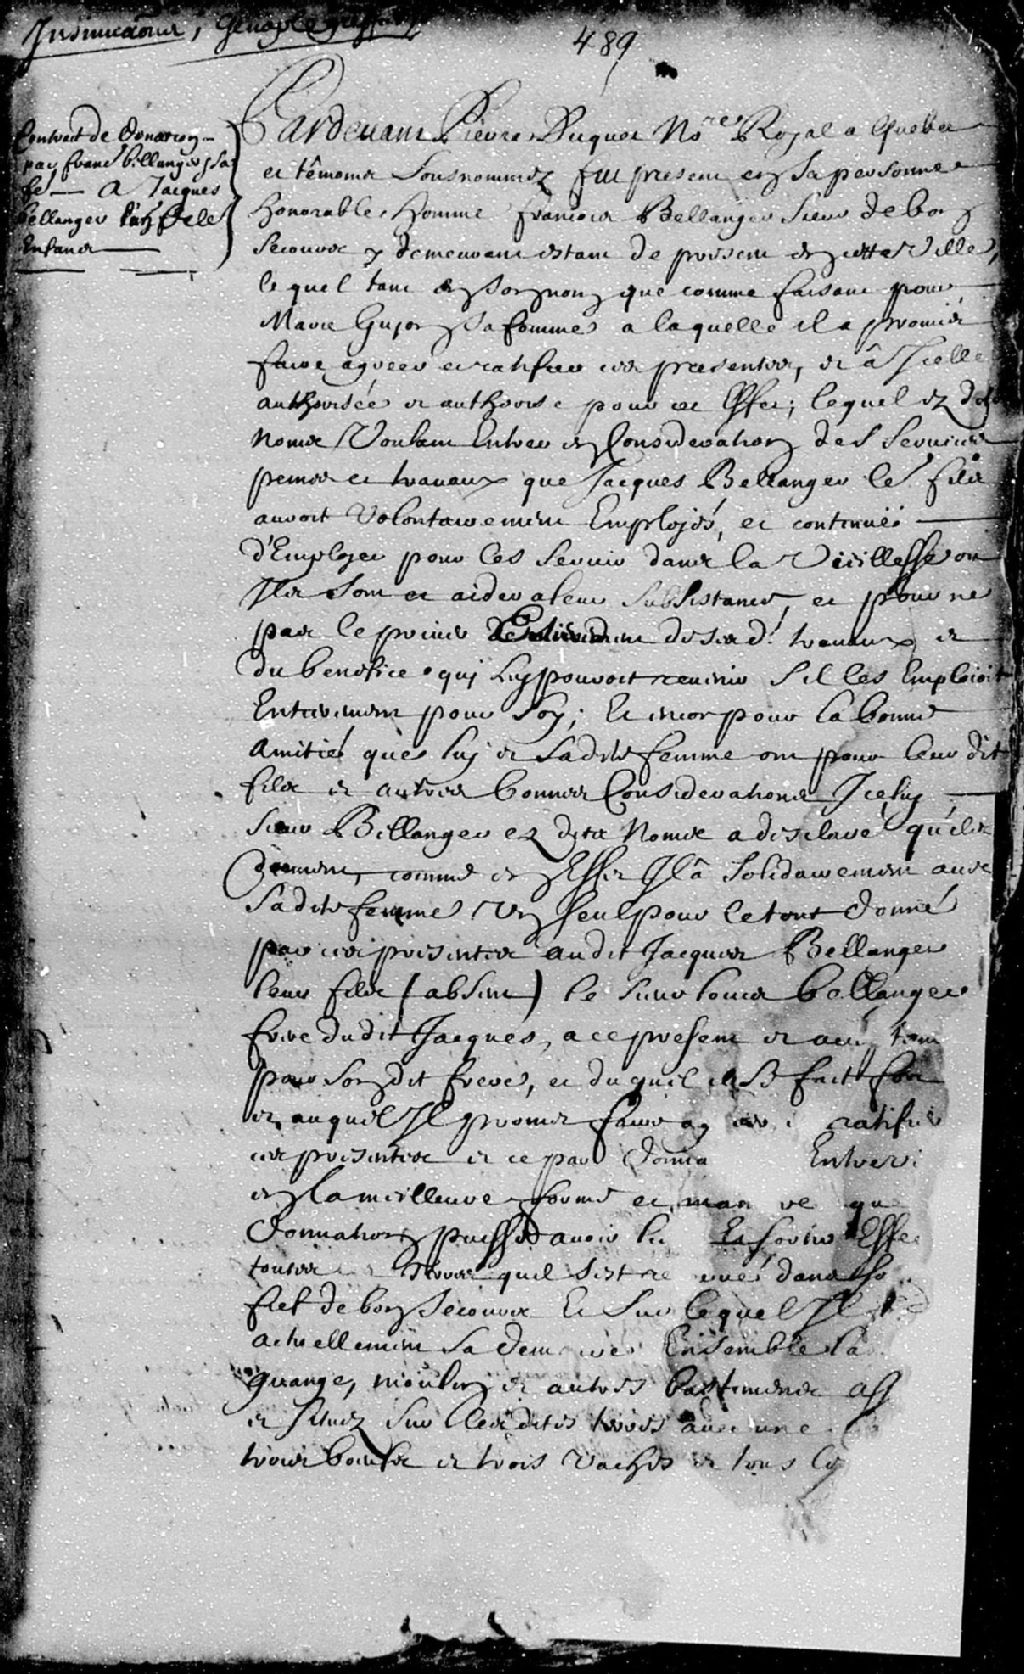 Insinuaõns, Genaple greffier
489
Contract de donation
par Franc̃ bellanger, & sa
fe — A Jacques
Bellanger l'un de les
Enfans
Pardevant Pierre Duquet No.re Royal a Quebec
et têmoins Sousnommez fut present en Sa personne
honorable homme francois Bellanger Sieur de bon
Secours y demeurant estant de present en cette Ville,
lequel tant en son nom que comme faisant pour
Marie Guyon Sa femme a laquelle il a promis
faire agreer et ratifier ces presentes, et â Icelle
authorisée et authorise pour cet Effet; lequel ez dits
noms Voulant Entrer en Consideration des Services
peines et travaux que Jacques Bellanger le fils
auroit Volontairement Employés, et continüe
d'Employer pour les Servir dans la Vieillesse ou
Ils sont et aider a leur Subsistance, et pour ne
pas le priver Entierement desesd. travaux et
du benefice qui luy pouvoit revenir S'il les Emploioit
Entierement pour Soy; Et encor pour la bonne
Amitié que luy et Sadite femme ont pour leur dit
fils et autres bonnes Considerations Iceluy
Sieur Bellanger ez dits Noms a desclaré qu'ils
donnent, comme en Effet Il â Solidairement avec
Sadite femme Un Seul pour le tout donné
par ces presentes audit Jacques Bellanger
leur fils (absent) le Sieur Louis bellanger
frere dudit Jacques, a ce present et acc tant
pour Son dit frere, et duquel il SE fait fort
et auquel Il promet faire ag ratifier
ces presentes et ce par donna Entrevi
en la meilleure forme et man re que
donnation puisse avoir lieu Et sortir Effe
toutes terres quil S'est re ervé dans so
fief de bon Secours Et Sur lequel Il
actuellement Sa dem Ensemble la
grange, moulin et autres bastimens ass
et Situez Sur lesdites terres avec une
trois boeufs et trois Vaches et tous les